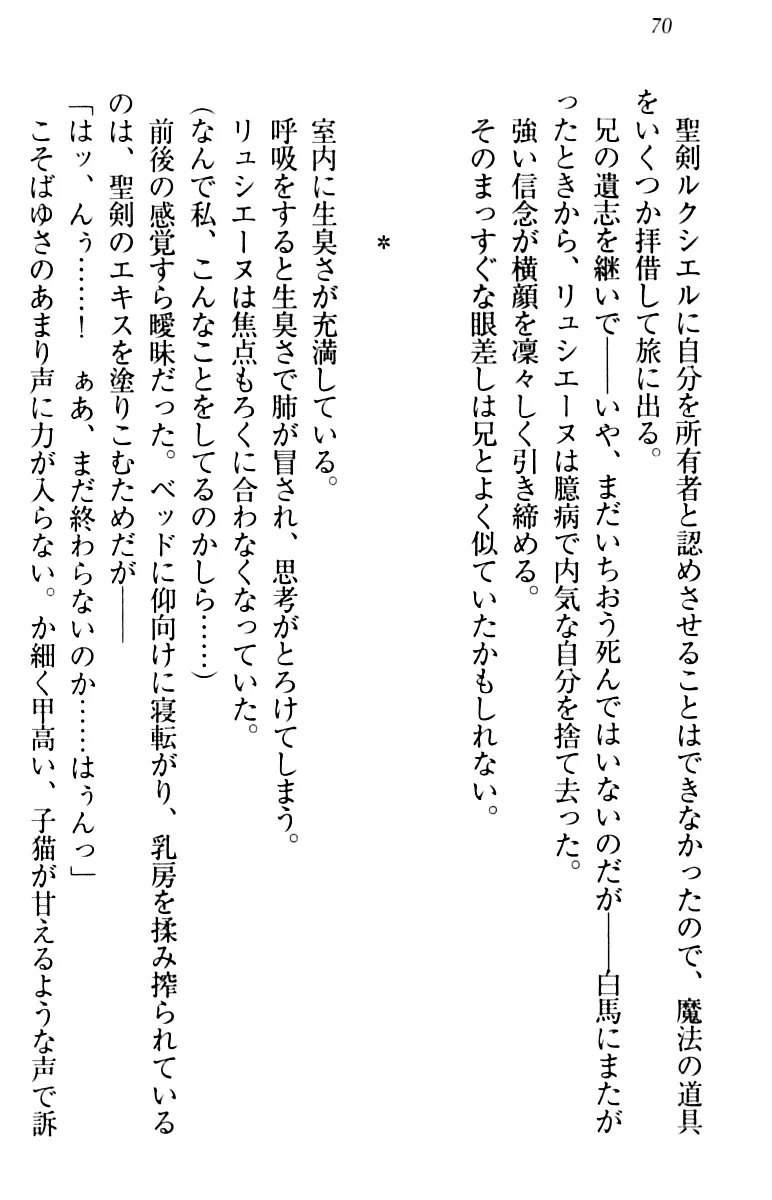 70
聖剣ルクシエルに自分を所有者と認めさせることはできなかったので、魔法の道具
をいくつか拝借して旅に出る。
兄の遺志を継いで――いや、まだいちおう死んではいないのだが――白馬にまたが
ったときから、リュシエーヌは臆病で内気な自分を捨て去った。
強い信念が横顔を凜々しく引き締める。
そのまっすぐな眼差しは兄とよく似ていたかもしれない。
*
室内に生臭さが充満している。
呼吸をすると生臭さで肺が冒され、思考がとろけてしまう。
リュシエーヌは焦点もろくに合わなくなっていた。
(なんで私、こんなことをしてるのかしら……)
前後の感覚すら曖昧だった。ベッドに仰向けに寝転がり、乳房を揉み搾られている
のは、聖剣のエキスを塗りこむためだが――
「はッ、んぅ……! ぁあ、まだ終わらないのか……はぅんっ」
こそばゆさのあまり声に力が入らない。か細く甲高い、子猫が甘えるような声で訴